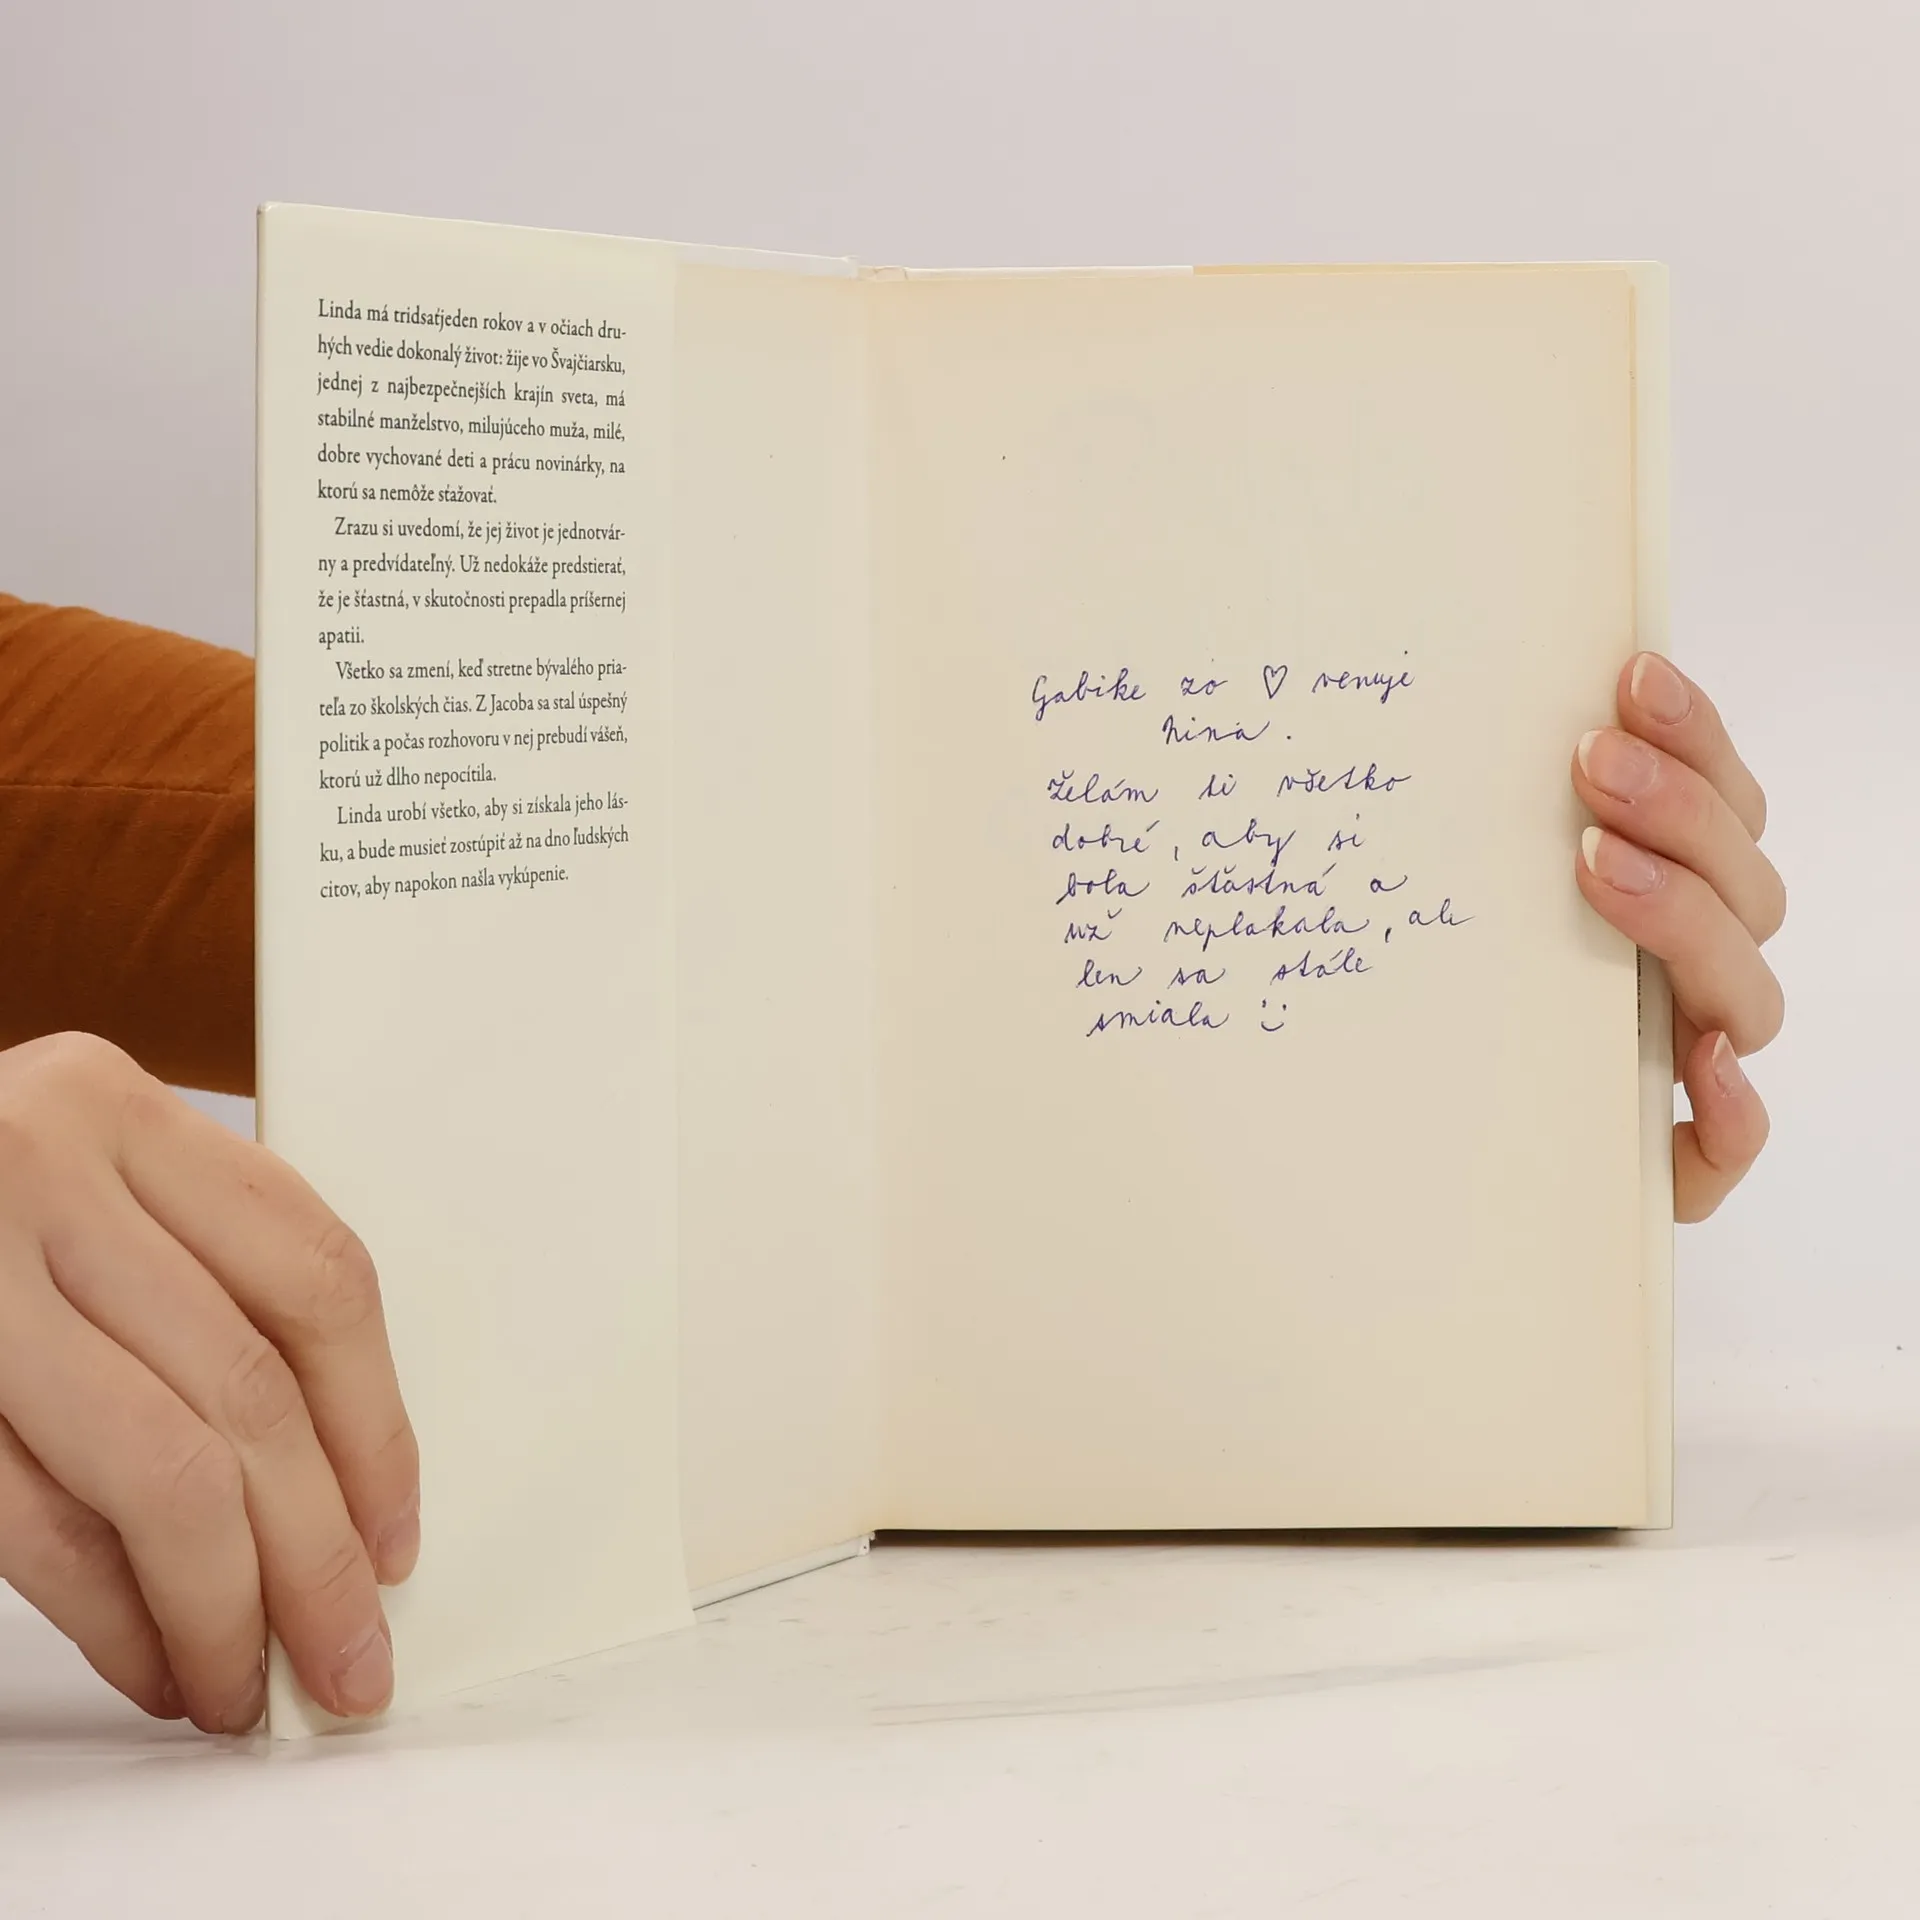 Linda má tridsaťjeden rokov a v očiach dru-
hých vedie dokonalý život: žije vo Švajčiarsku,
jednej z najbezpečnejších krajín sveta, má
stabilné manželstvo, milujúceho muža, milé,
dobre vychované deti a prácu novinárky, na
ktorú sa nemôže sťažovať.
Zrazu si uvedomí, že jej život je jednotvár-
ny a predvídateľný. Už nedokáže predstierať,
že je šťastná, v skutočnosti prepadla príšernej
apatii.
Všetko sa zmení, keď stretne bývalého pria-
teľa zo školských čias. Z Jacoba sa stal úspešný
politik a počas rozhovoru v nej prebudí vášeň,
ktorú už dlho nepocítila.
Linda urobí všetko, aby si získala jeho lás-
ku, a bude musieť zostúpiť až na dno ľudských
citov, aby napokon našla vykúpenie.
Gabike zo ♡ venuje
Nina.
Želám ti všetko
dobré, aby si
bola šťastná a
už neplakala, ale
len sa stále
smiala :)